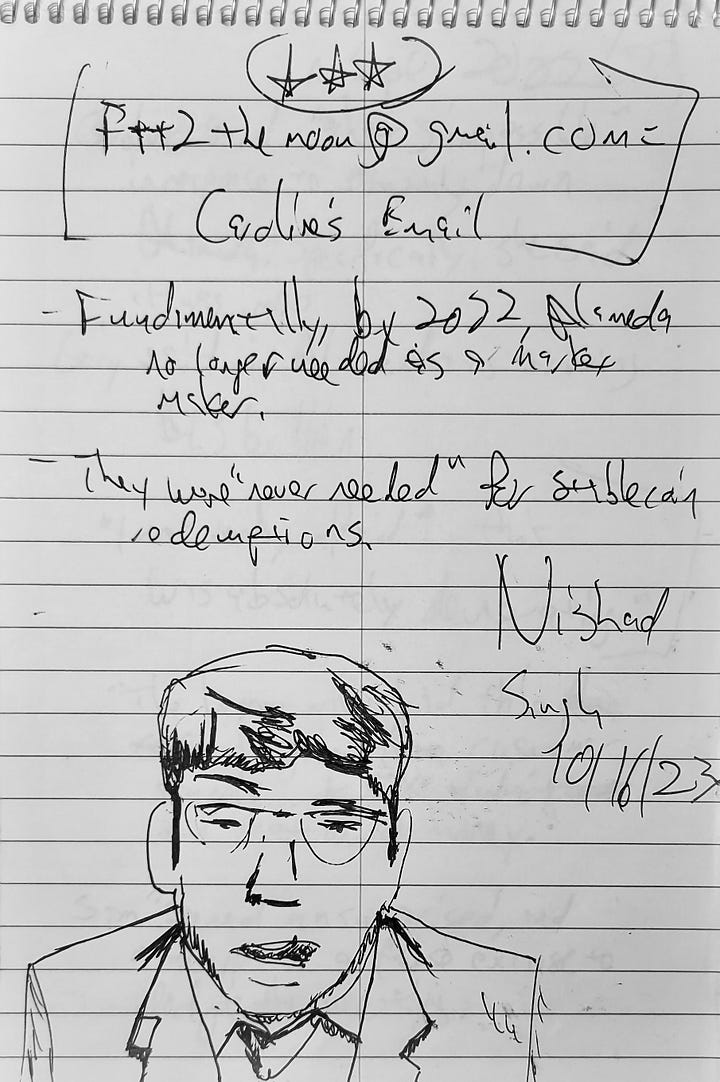 Ftt2themoon@gmail.com =
Caroline's Email
- Fundimentally, by 2022, Alameda
no longer needed as a market
maker.
- They were "never needed" for stablecoin
redemptions.
Nishad
Singh
10/16/23